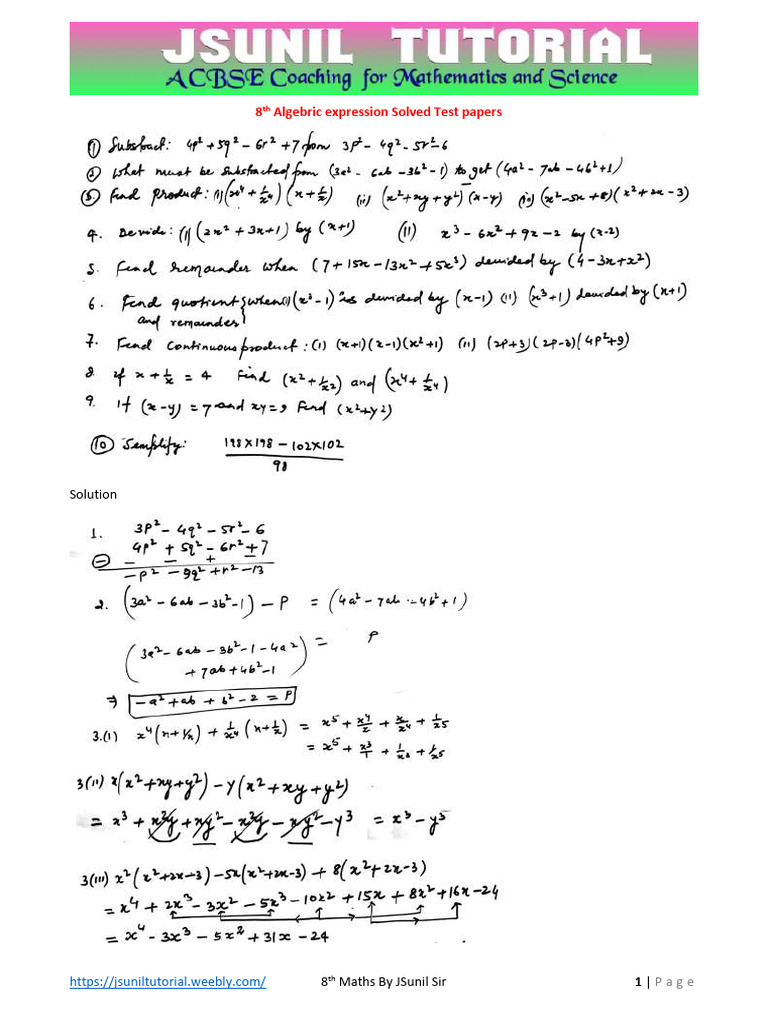 JSUNIL TUTORIAL
ACBSE Coaching for Mathematics and Science
8th Algebric expression Solved Test papers
① Substract: 4p² + 5q² - 6r² + 7 from 3p² - 4q² - 5r² - 6
2. What must be substracted from (3a² - 6ab - 3b² - 1) to get (4a² - 7ab - 4b² + 1)
③. Find product: (i) (x⁴ + 1/x⁴) (x + 1/x) (ii) (x² + xy + y²) (x-y) (iii) (x² - 5x + 8) (x² + 2x - 3)
4. Devide: (i) (2x² + 3x + 1) by (x+1) (ii) x³ - 6x² + 9x - 2 by (x-2)
5. Find remainder when (7 + 15x - 13x² + 5x³) devided by (4 - 3x + x²)
6. Find quotient { when (i) (x³ - 1) is devided by (x-1) (ii) (x³ + 1) devided by (x+1)
and remainder
7. Find continuous product: (i) (x+1) (x-1) (x² + 1) (ii) (2p+3) (2p-3) (4p² + 9)
8. if x + 1/x = 4 Find (x² + 1/x²) and (x⁴ + 1/x⁴)
9. If (x-y) = 7 and xy = 9 Find (x² + y²)
⑩ Semplify: (198 X 198 - 102 X 102) / 98
Solution
1. 3p² - 4q² - 5r² - 6
4p² + 5q² - 6r² + 7
⊖ - - + -
-p² - 9q² + r² - 13
2. (3a² - 6ab - 3b² - 1) - P = (4a² - 7ab - 4b² + 1)
(3a² - 6ab - 3b² - 1 - 4a² = P
+ 7ab + 4b² - 1)
⇒ -a² + ab + b² - 2 = P
3.(i) x⁴(x + 1/x) + 1/x⁴ (x + 1/x) = x⁵ + x⁴/x + x/x⁴ + 1/x⁵
= x⁵ + x³/1 + 1/x³ + 1/x⁵
3(ii) x(x² + xy + y²) - y(x² + xy + y²)
= x³ + x²y + xy² - x²y - xy² - y³ = x³ - y³
3(iii) x²(x² + 2x - 3) - 5x(x² + 2x - 3) + 8(x² + 2x - 3)
= x⁴ + 2x³ - 3x² - 5x³ - 10x² + 15x + 8x² + 16x - 24
= x⁴ - 3x³ - 5x² + 31x - 24
https://jsuniltutorial.weebly.com/ 8th Maths By JSunil Sir 1 | Page